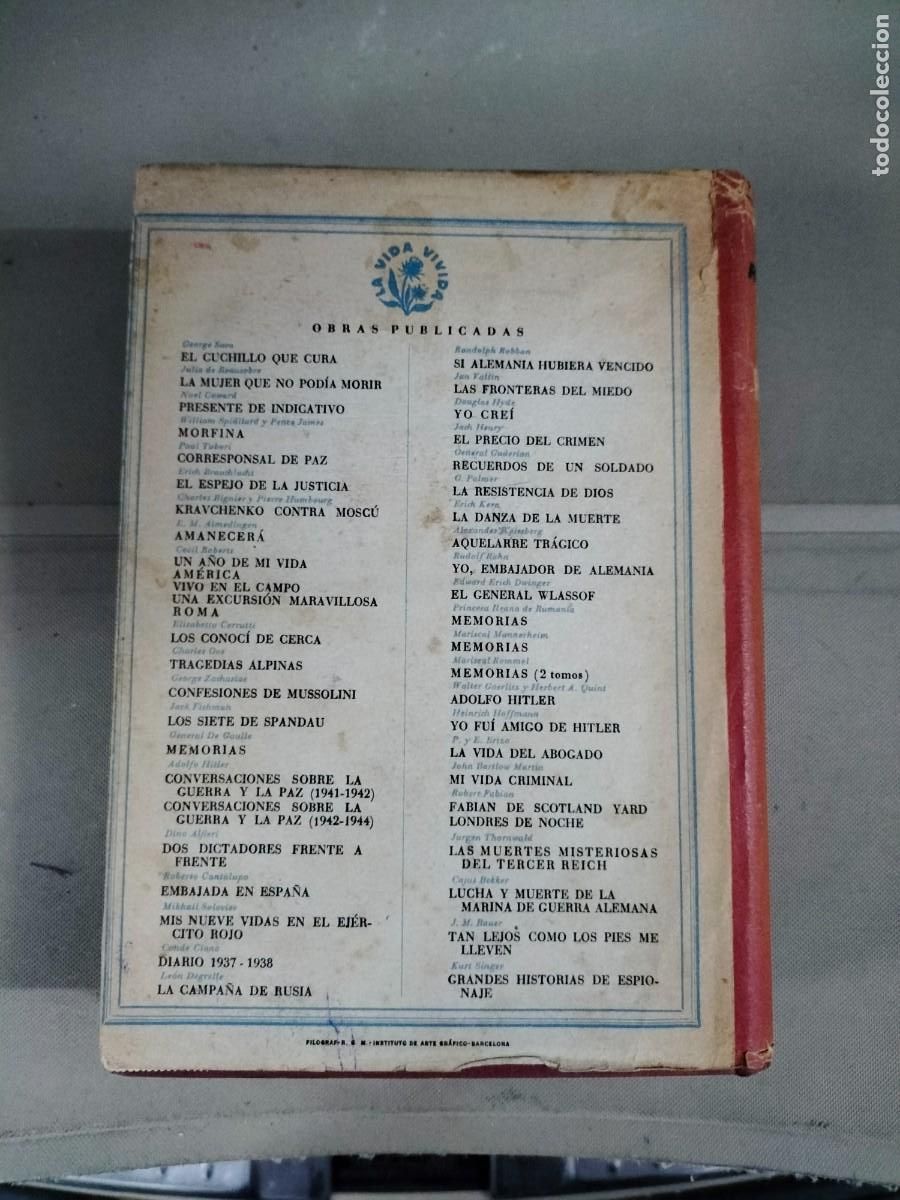 LA VIDA VIVIDA
OBRAS PUBLICADAS
George Sava
EL CUCHILLO QUE CURA
Julia de Beausobre
LA MUJER QUE NO PODÍA MORIR
Noel Coward
PRESENTE DE INDICATIVO
William Spillard y Pence James
MORFINA
Paul Tabori
CORRESPONSAL DE PAZ
Erich
EL ESPEJO DE LA JUSTICIA
Charles Bignier y Pierre Humbourg
KRAVCHENKO CONTRA MOSCÚ
E. M. Almedingen
AMANECERÁ
Cecil Roberts
UN AÑO DE MI VIDA
AMÉRICA
VIVO EN EL CAMPO
UNA EXCURSIÓN MARAVILLOSA
ROMA
Elisabetta Cerrutti
LOS CONOCÍ DE CERCA
Charles Gos
TRAGEDIAS ALPINAS
George Zachariae
CONFESIONES DE MUSSOLINI
Jack Fishman
LOS SIETE DE SPANDAU
General De Gaulle
MEMORIAS
Adolfo Hitler
CONVERSACIONES SOBRE LA
GUERRA Y LA PAZ (1941-1942)
CONVERSACIONES SOBRE LA
GUERRA Y LA PAZ (1942-1944)
Dino Alfieri
DOS DICTADORES FRENTE A
FRENTE
Roberto Cantalupo
EMBAJADA EN ESPAÑA
Mikhail Soloviev
MIS NUEVE VIDAS EN EL EJÉR-
CITO ROJO
Conde Ciano
DIARIO 1937 - 1938
León Degrelle
LA CAMPAÑA DE RUSIA
Randolph Robban
SI ALEMANIA HUBIERA VENCIDO
Jan Valtin
LAS FRONTERAS DEL MIEDO
Douglas Hyde
YO CREÍ
Jack Henry
EL PRECIO DEL CRIMEN
General Guderian
RECUERDOS DE UN SOLDADO
G. Palmer
LA RESISTENCIA DE DIOS
Erich Kern
LA DANZA DE LA MUERTE
Alexander Weissberg
AQUELARRE TRÁGICO
Rudolf Rahn
YO, EMBAJADOR DE ALEMANIA
Edward Erich Dwinger
EL GENERAL WLASSOF
Princesa Ileana de Rumania
MEMORIAS
Mariscal Mannerheim
MEMORIAS
Mariscal Rommel
MEMORIAS (2 tomos)
Walter Goerlitz y Herbert A. Quint
ADOLFO HITLER
Heinrich Hoffmann
YO FUÍ AMIGO DE HITLER
P. y E. Erizo
LA VIDA DEL ABOGADO
John Bartlow Martin
MI VIDA CRIMINAL
Robert Fabian
FABIAN DE SCOTLAND YARD
LONDRES DE NOCHE
Jurgen Thorwald
LAS MUERTES MISTERIOSAS
DEL TERCER REICH
Cajus Bekker
LUCHA Y MUERTE DE LA
MARINA DE GUERRA ALEMANA
J. M. Bauer
TAN LEJOS COMO LOS PIES ME
LLEVEN
Kurt Singer
GRANDES HISTORIAS DE ESPIO-
NAJE
FILOGRAF-R. G. M.-INSTITUTO DE ARTE GRÁFICO-BARCELONA
todocoleccion